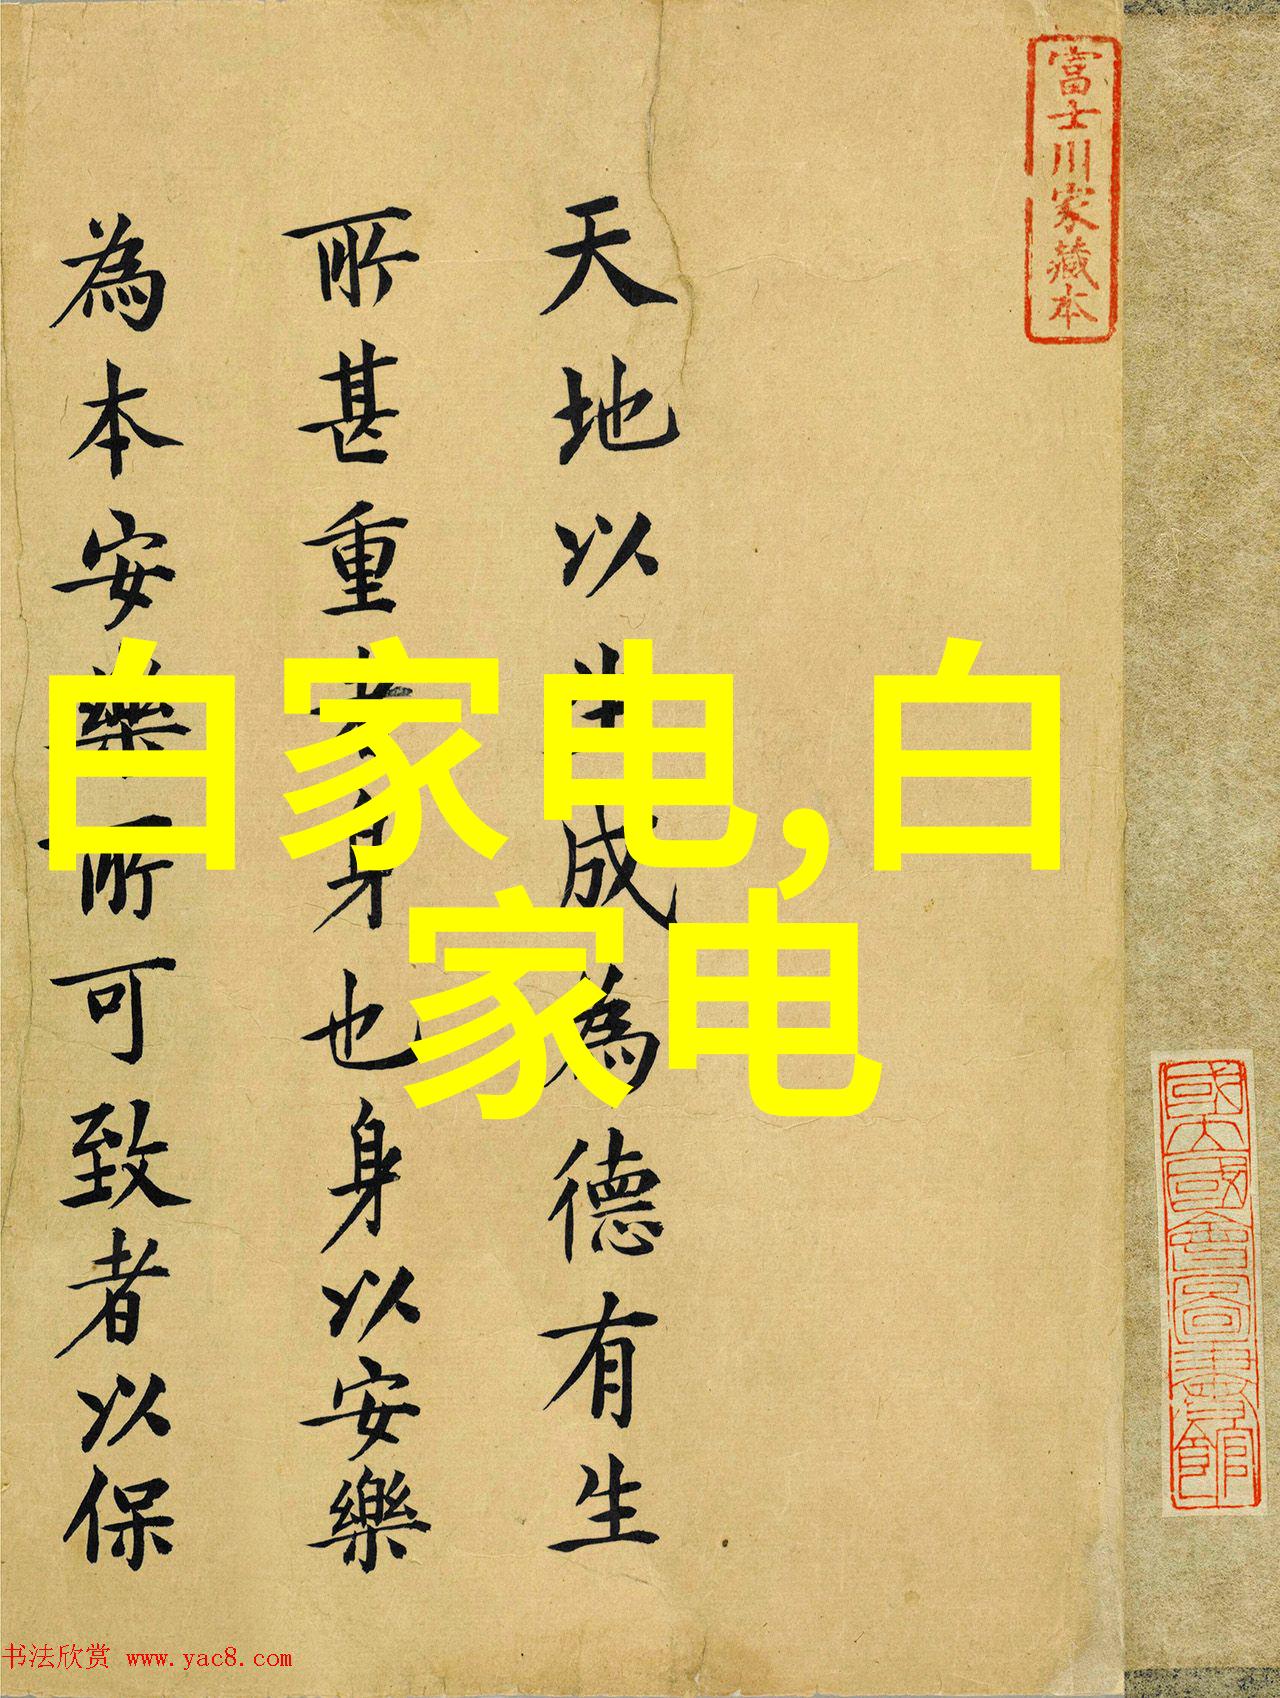 富士川家藏本
國立國會圖書館
天地以生成為德有生
所甚重者身也身以安樂
為本安樂所可致者以保
白家电,白
家电
书法欣赏 www.yac8.com